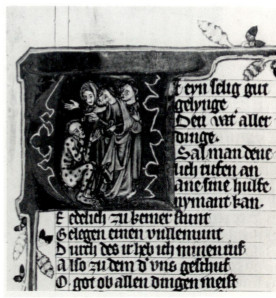 t eyn selig gut
gelynge.
Den vat aller
dinge.
Sal man dene
lich rufen an
ane sine hulfe
nymant kan.
E edelich zu keiner stunt
Gelegen einen vullemunt
Durch des ir heb ich minen ruf
Also zu dem d' vns geschuf
O got ob allen dingen meist